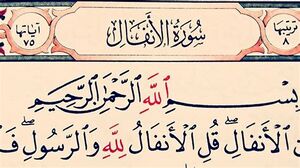 ترتيبها ٨
سُورَةُ الأَنفَال
آيَاتُهَا ٧٥
بِسْمِ ٱللَّهِ ٱلرَّحْمَٰنِ ٱلرَّحِيمِ
ٱلْأَنفَالِ ۖ قُلِ ٱلْأَنفَالُ لِلَّهِ وَٱلرَّسُولِ ۖ